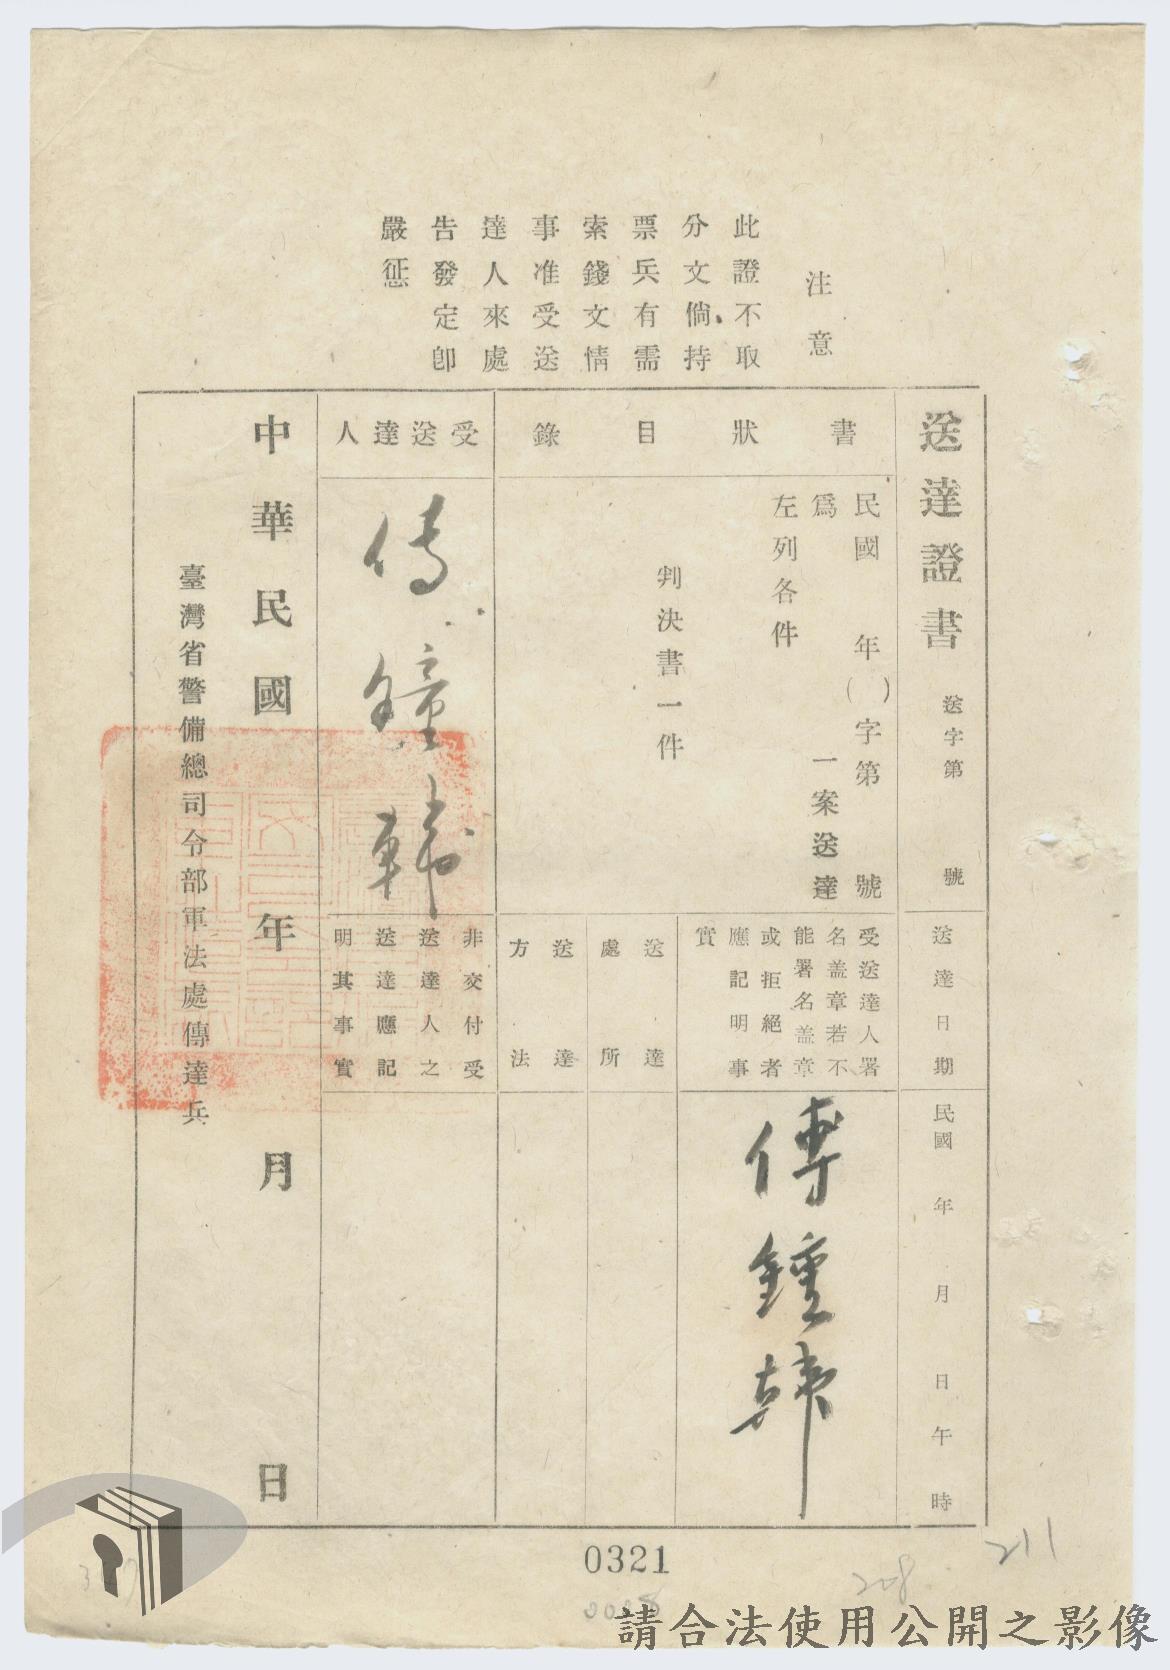 注意
此證不取
分文倘持
票兵有需
索錢文情
事准受送
達人來處
告發定卽
嚴懲
送達證書 送字第 號
送達日期
民國 年 月 日 午 時
書狀目錄
民國 年( )字第 號
爲 一案送達
左列各件
判決書一件
受送達人署
名盖章若不
能署名盖章
或拒絕者
應記明事
實
傅鐘韓
送達
處所
送達
方法
受送達人
傅鐘韓
非交付受
送達人之
送達應記
明其事實
中華民國 年 月 日
臺灣省警備總司令部軍法處傳達兵
0321
208
211
請合法使用公開之影像